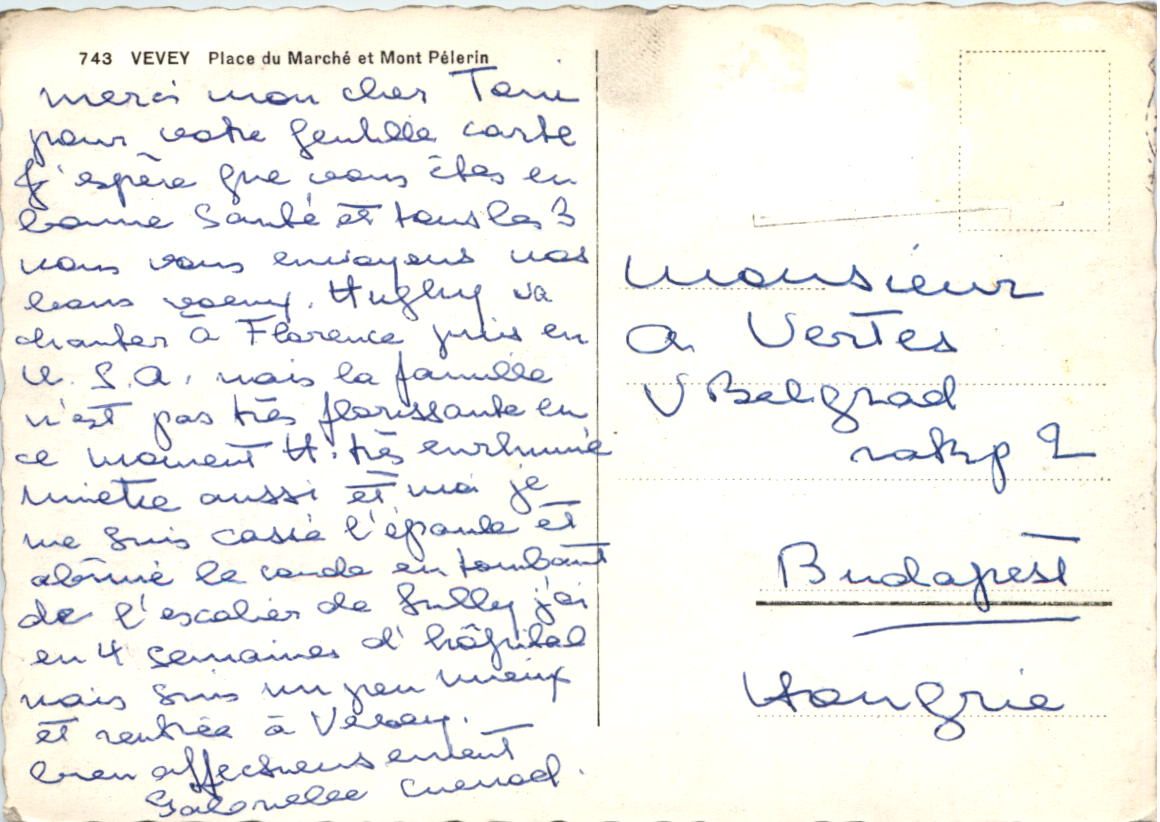 743 VEVEY Place du Marché et Mont Pélerin
merci mon cher
pour votre gentille carte
J'espère que vous êtes en
bonne santé et tous les 3
nous vous envoyons nos
bons voeux. Hughy va
chanter à Florence puis en
U.S.A. mais la famille
n'est pas très florissante en
ce moment H. très enrhumé
aussi et moi je
me suis cassé l'épaule et
abîmé le coude en tombant
de l'escalier de j'ai
eu 4 semaines d'hôpital
mais suis un peu mieux
et rentrée à Vevey.
bien affectueusement
Cuenod.
Monsieur
A. Vertes
V Belgrad
rakp 2
Budapest
Hongrie